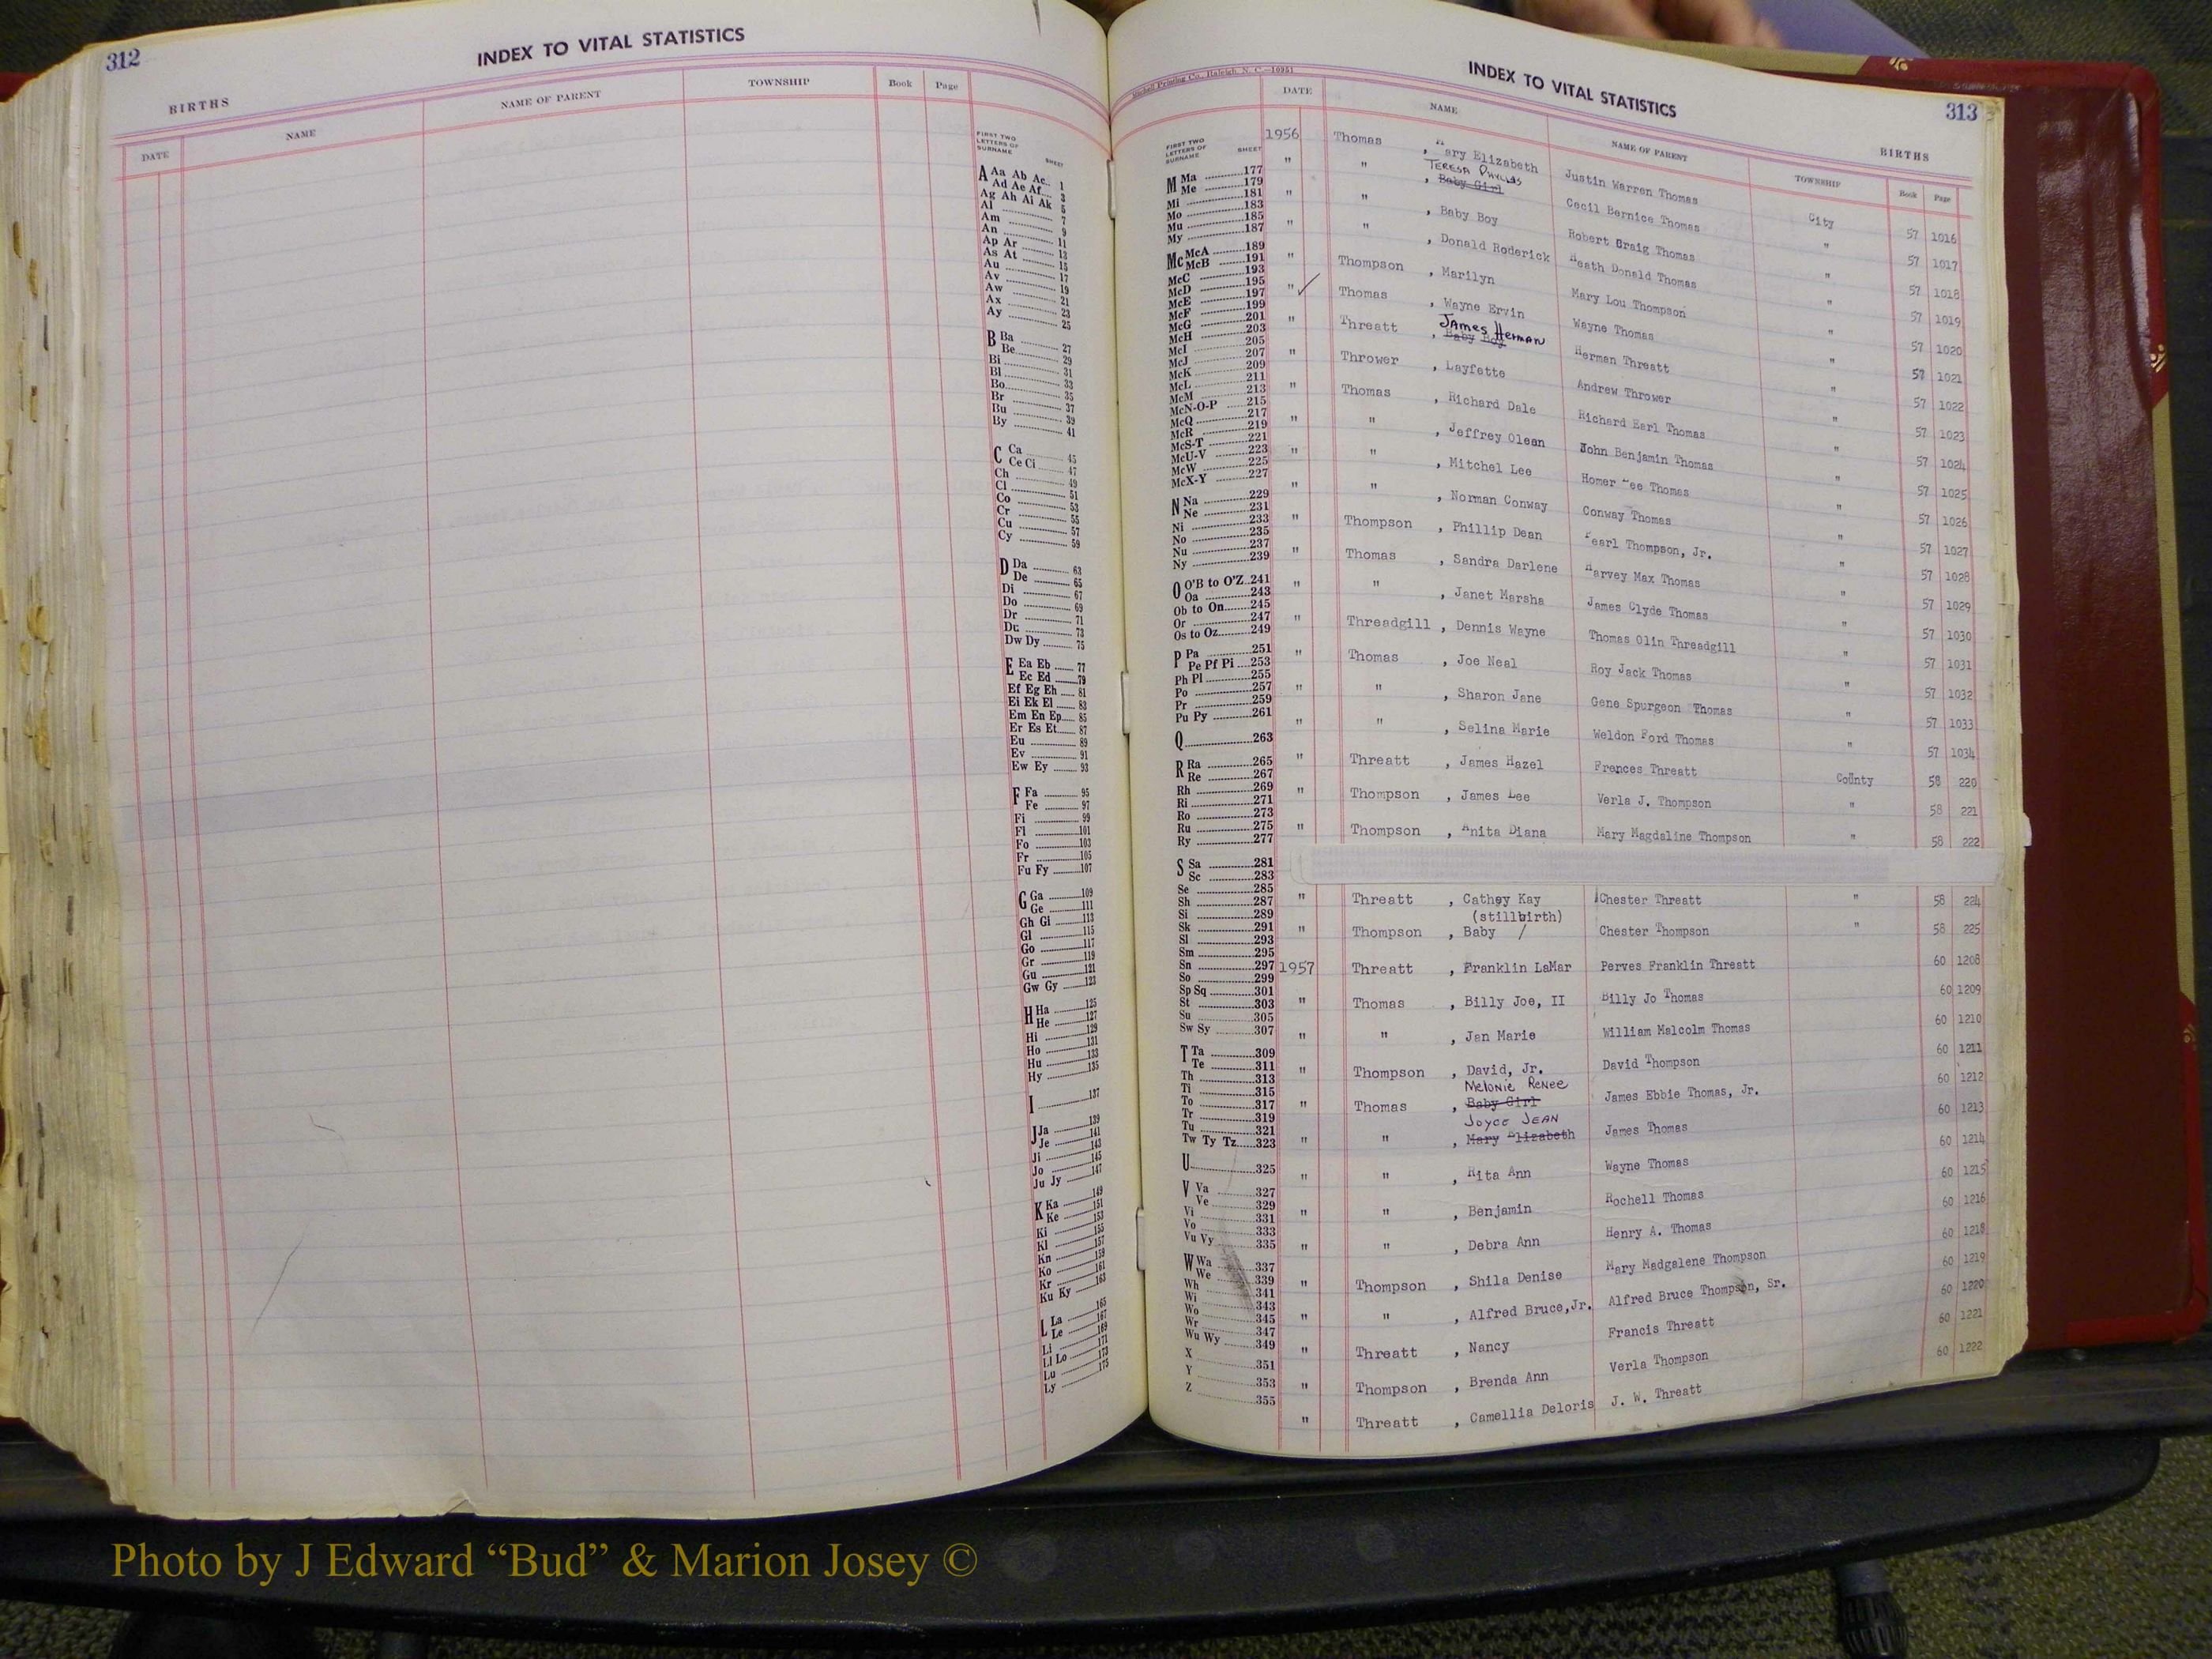 312
INDEX TO VITAL STATISTICS
BIRTHS
DATE NAME NAME OF PARENT TOWNSHIP Book Page
FIRST TWO
LETTERS OF
SURNAME SHEET
A Aa Ab Ac 1
Ad Ae Af 3
Ag Ah Ai Ak 5
Al 7
Am 9
An 11
Ap Ar 13
As At 15
Au 17
Av 19
Aw 21
Ax 23
Ay 25
B Ba 27
Be 29
Bi 31
Bl 33
Bo 35
Br 37
Bu 39
By 41
C Ca 45
Ce Ci 47
Ch 49
Cl 51
Co 53
Cr 55
Cu 57
Cy 59
D Da 63
De 65
Di 67
Do 69
Dr 71
Du 73
Dw Dy 75
E Ea Eb 77
Ec Ed 79
Ef Eg Eh 81
Ei Ek El 83
Em En Ep 85
Er Es Et 87
Eu 89
Ev 91
Ew Ey 93
F Fa 95
Fe 97
Fi 99
Fl 101
Fo 103
Fr 105
Fu Fy 107
G Ga 109
Ge 111
Gh Gi 113
Gl 115
Go 117
Gr 119
Gu 121
Gw Gy 123
H Ha 125
He 127
Hi 129
Ho 131
Hu 133
Hy 135
I 137
J Ja 139
Je 141
Ji 143
Jo 145
Ju Jy 147
K Ka 149
Ke 151
Ki 153
Kl 155
Kn 157
Ko 159
Kr 161
Ku Ky 163
L La 165
Le 167
Li 169
Ll Lo 171
Lu 173
Ly 175
Mitchell Printing Co., Raleigh, N. C.—10951
INDEX TO VITAL STATISTICS
313
BIRTHS
FIRST TWO
LETTERS OF
SURNAME SHEET
M Ma 177
Me 179
Mi 181
Mo 183
Mu 185
My 187
Mc McA 189
McB 191
McC 193
McD 195
McE 197
McF 199
McG 201
McH 203
McI 205
McJ 207
McK 209
McL 211
McM 213
McN-O-P 215
McQ 217
McR 219
McS-T 221
McU-V 223
McW 225
McX-Y 227
N Na 229
Ne 231
Ni 233
No 235
Nu 237
Ny 239
O O'B to O'Z 241
Oa 243
Ob to On 245
Or 247
Os to Oz 249
P Pa 251
Pe Pf Pi 253
Ph Pl 255
Po 257
Pr 259
Pu Py 261
Q 263
R Ra 265
Re 267
Rh 269
Ri 271
Ro 273
Ru 275
Ry 277
S Sa 281
Sc 283
Se 285
Sh 287
Si 289
Sk 291
Sl 293
Sm 295
Sn 297
So 299
Sp Sq 301
St 303
Su 305
Sw Sy 307
T Ta 309
Te 311
Th 313
Ti 315
To 317
Tr 319
Tu 321
Tw Ty Tz 323
U 325
V Va 327
Ve 329
Vi 331
Vo 333
Vu Vy 335
W Wa 337
We 339
Wh 341
Wi 343
Wo 345
Wr 347
Wu Wy 349
X 351
Y 353
Z 355
DATE NAME NAME OF PARENT TOWNSHIP Book Page
1956 Thomas , Mary Elizabeth Justin Warren Thomas City 57 1016
TERESA PHYLLIS
" " , Baby Girl Cecil Bernice Thomas " 57 1017
" " , Baby Boy Robert Craig Thomas " 57 1018
" " , Donald Roderick Heath Donald Thomas " 57 1019
" Thompson , Marilyn Mary Lou Thompson " 57 1020
" ✓ Thomas , Wayne Ervin Wayne Thomas " 57 1021
JAMES HERMAN
" Threatt , Baby Boy Herman Threatt " 57 1022
" Thrower , Layfette Andrew Thrower " 57 1023
" Thomas , Richard Dale Richard Earl Thomas " 57 1024
" " , Jeffrey Olean John Benjamin Thomas " 57 1025
" " , Mitchel Lee Homer Lee Thomas " 57 1026
" " , Norman Conway Conway Thomas " 57 1027
" Thompson , Phillip Dean Pearl Thompson, Jr. " 57 1028
" Thomas , Sandra Darlene Harvey Max Thomas " 57 1029
" " , Janet Marsha James Clyde Thomas " 57 1030
" Threadgill , Dennis Wayne Thomas Olin Threadgill " 57 1031
" Thomas , Joe Neal Roy Jack Thomas " 57 1032
" " , Sharon Jane Gene Spurgeon Thomas " 57 1033
" " , Selina Marie Weldon Ford Thomas " 57 1034
" Threatt , James Hazel Frences Threatt County 58 220
" Thompson , James Lee Verla J. Thompson " 58 221
" Thompson , Anita Diana Mary Magdaline Thompson " 58 222
" Threatt , Cathey Kay Chester Threatt " 58 224
(stillbirth)
" Thompson , Baby / Chester Thompson " 58 225
1957 Threatt , Franklin LaMar Perves Franklin Threatt 60 1208
" Thomas , Billy Joe, II Billy Jo Thomas 60 1209
" " , Jan Marie William Malcolm Thomas 60 1210
" Thompson , David, Jr. David Thompson 60 1211
Melonie Renee
" Thomas , Baby Girl James Ebbie Thomas, Jr. 60 1212
Joyce JEAN
" " , Mary Elizabeth James Thomas 60 1213
" " , Rita Ann Wayne Thomas 60 1214
" " , Benjamin Rochell Thomas 60 1215
" " , Debra Ann Henry A. Thomas 60 1216
" Thompson , Shila Denise Mary Madgalene Thompson 60 1218
" " , Alfred Bruce,Jr. Alfred Bruce Thompson, Sr. 60 1219
" Threatt , Nancy Francis Threatt 60 1220
" Thompson , Brenda Ann Verla Thompson 60 1221
" Threatt , Camellia Deloris J. W. Threatt 60 1222
Photo by J Edward “Bud” & Marion Josey ©